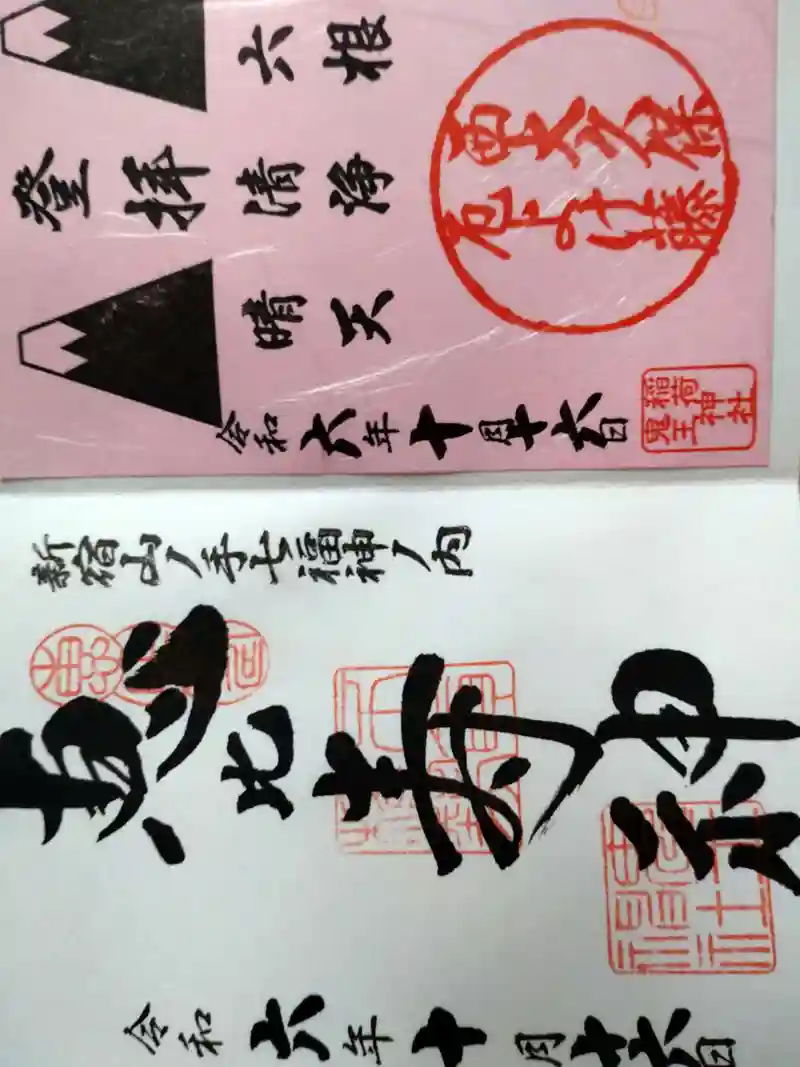 西大久保
厄よけ藤
六根
登拝
清浄
晴天
令和六年十月十六日
稲荷神社
鬼王
新宿山ノ手七福神ノ内
恵比寿神
令和六年十月十六日